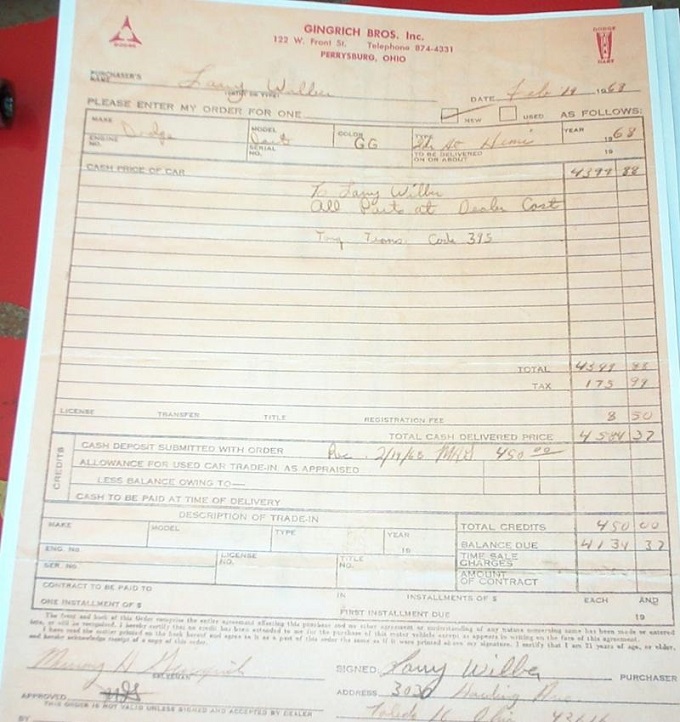 GINGRICH BROS. Inc.
122 W. Front St. Telephone 874-4331
PERRYSBURG, OHIO
DODGE
DODGE
DART
PURCHASER'S NAME Larry Wilber
DATE Feb 19 1968
PLEASE ENTER MY ORDER FOR ONE NEW USED AS FOLLOWS:
MAKE Dodge MODEL Dart COLOR GG TYPE Hemi YEAR 1968
ENGINE NO. SERIAL NO. TO BE DELIVERED ON OR ABOUT 19
CASH PRICE OF CAR 4399 88
To Larry Wilber
All Parts at Dealer Cost
Torq Trans. Code 395
TOTAL 4399 88
TAX 175 99
LICENSE TRANSFER TITLE REGISTRATION FEE 8 50
TOTAL CASH DELIVERED PRICE 4584 37
CREDITS
CASH DEPOSIT SUBMITTED WITH ORDER Rec. 2/19/68 450 00
ALLOWANCE FOR USED CAR TRADE-IN AS APPRAISED
LESS BALANCE OWING TO—
CASH TO BE PAID AT TIME OF DELIVERY
DESCRIPTION OF TRADE-IN TOTAL CREDITS 450 00
MAKE MODEL TYPE YEAR 19 BALANCE DUE 4134 37
ENG. No. LICENSE NO. TITLE NO. TIME SALE CHARGES
SER. No. AMOUNT OF CONTRACT
CONTRACT TO BE PAID TO IN INSTALLMENTS OF $ EACH AND
ONE INSTALLMENT OF $ FIRST INSTALLMENT DUE 19
The front and back of this Order comprise the entire agreement affecting this purchase and no other agreement or understanding of any nature concerning same has been made or entered
into, or will be recognized. I hereby certify that no credit has been extended to me for the purchase of this motor vehicle except as appears in writing on the face of this agreement.
I have read the matter printed on the back hereof and agree to it as a part of this order the same as if it were printed above my signature. I certify that I am 21 years of age, or older,
and hereby acknowledge receipt of a copy of this order.
SALESMAN
SIGNED Larry Wilber PURCHASER
APPROVED
ADDRESS 3030
THIS ORDER IS NOT VALID UNLESS SIGNED AND ACCEPTED BY DEALER
BY
Toledo Ohio